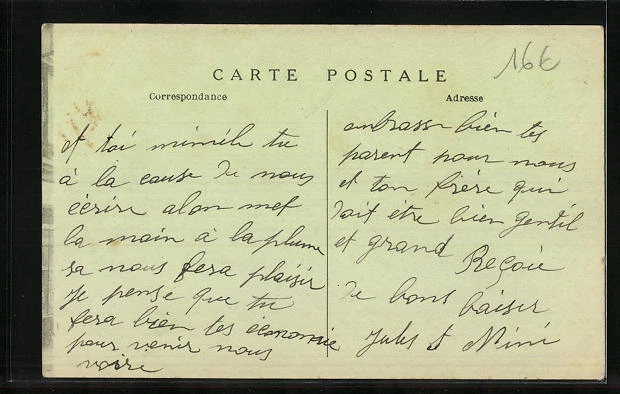 CARTE POSTALE
16€
Correspondance
Adresse
et toi mimile tu
à la cause de nous
écrire alon met
la main à la plume
sa nous fera plaisir
Je pense que tu
fera bien tes économie
pour venir nous
voire
anbrasse bien tes
parent pour nous
et ton frère qui
doit être bien gentil
et grand
Reçoie
de bons baiser
Jules et Mimi